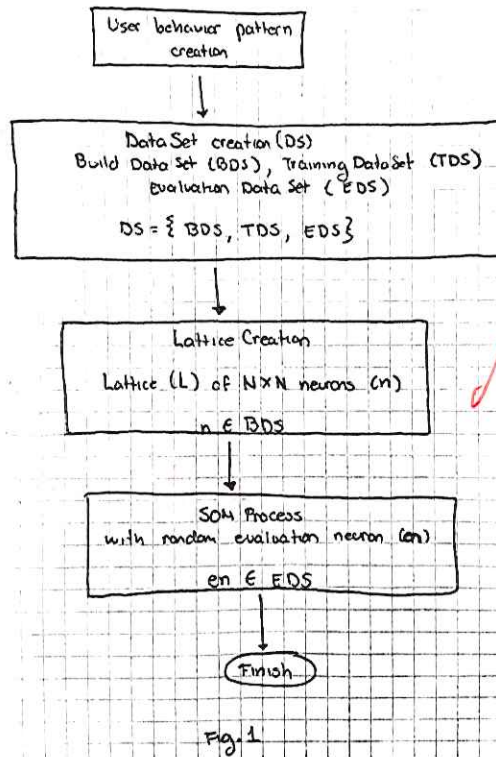 User behavior pattern
creation
Data Set creation (DS)
Build Data Set (BDS), Training DataSet (TDS)
Evaluation Data Set (EDS)
DS = { BDS, TDS, EDS}
Lattice Creation
Lattice (L) of N×N neurons (n)
n ∈ BDS
SOM Process
with random evaluation neuron (en)
en ∈ EDS
Finish
Fig. 1